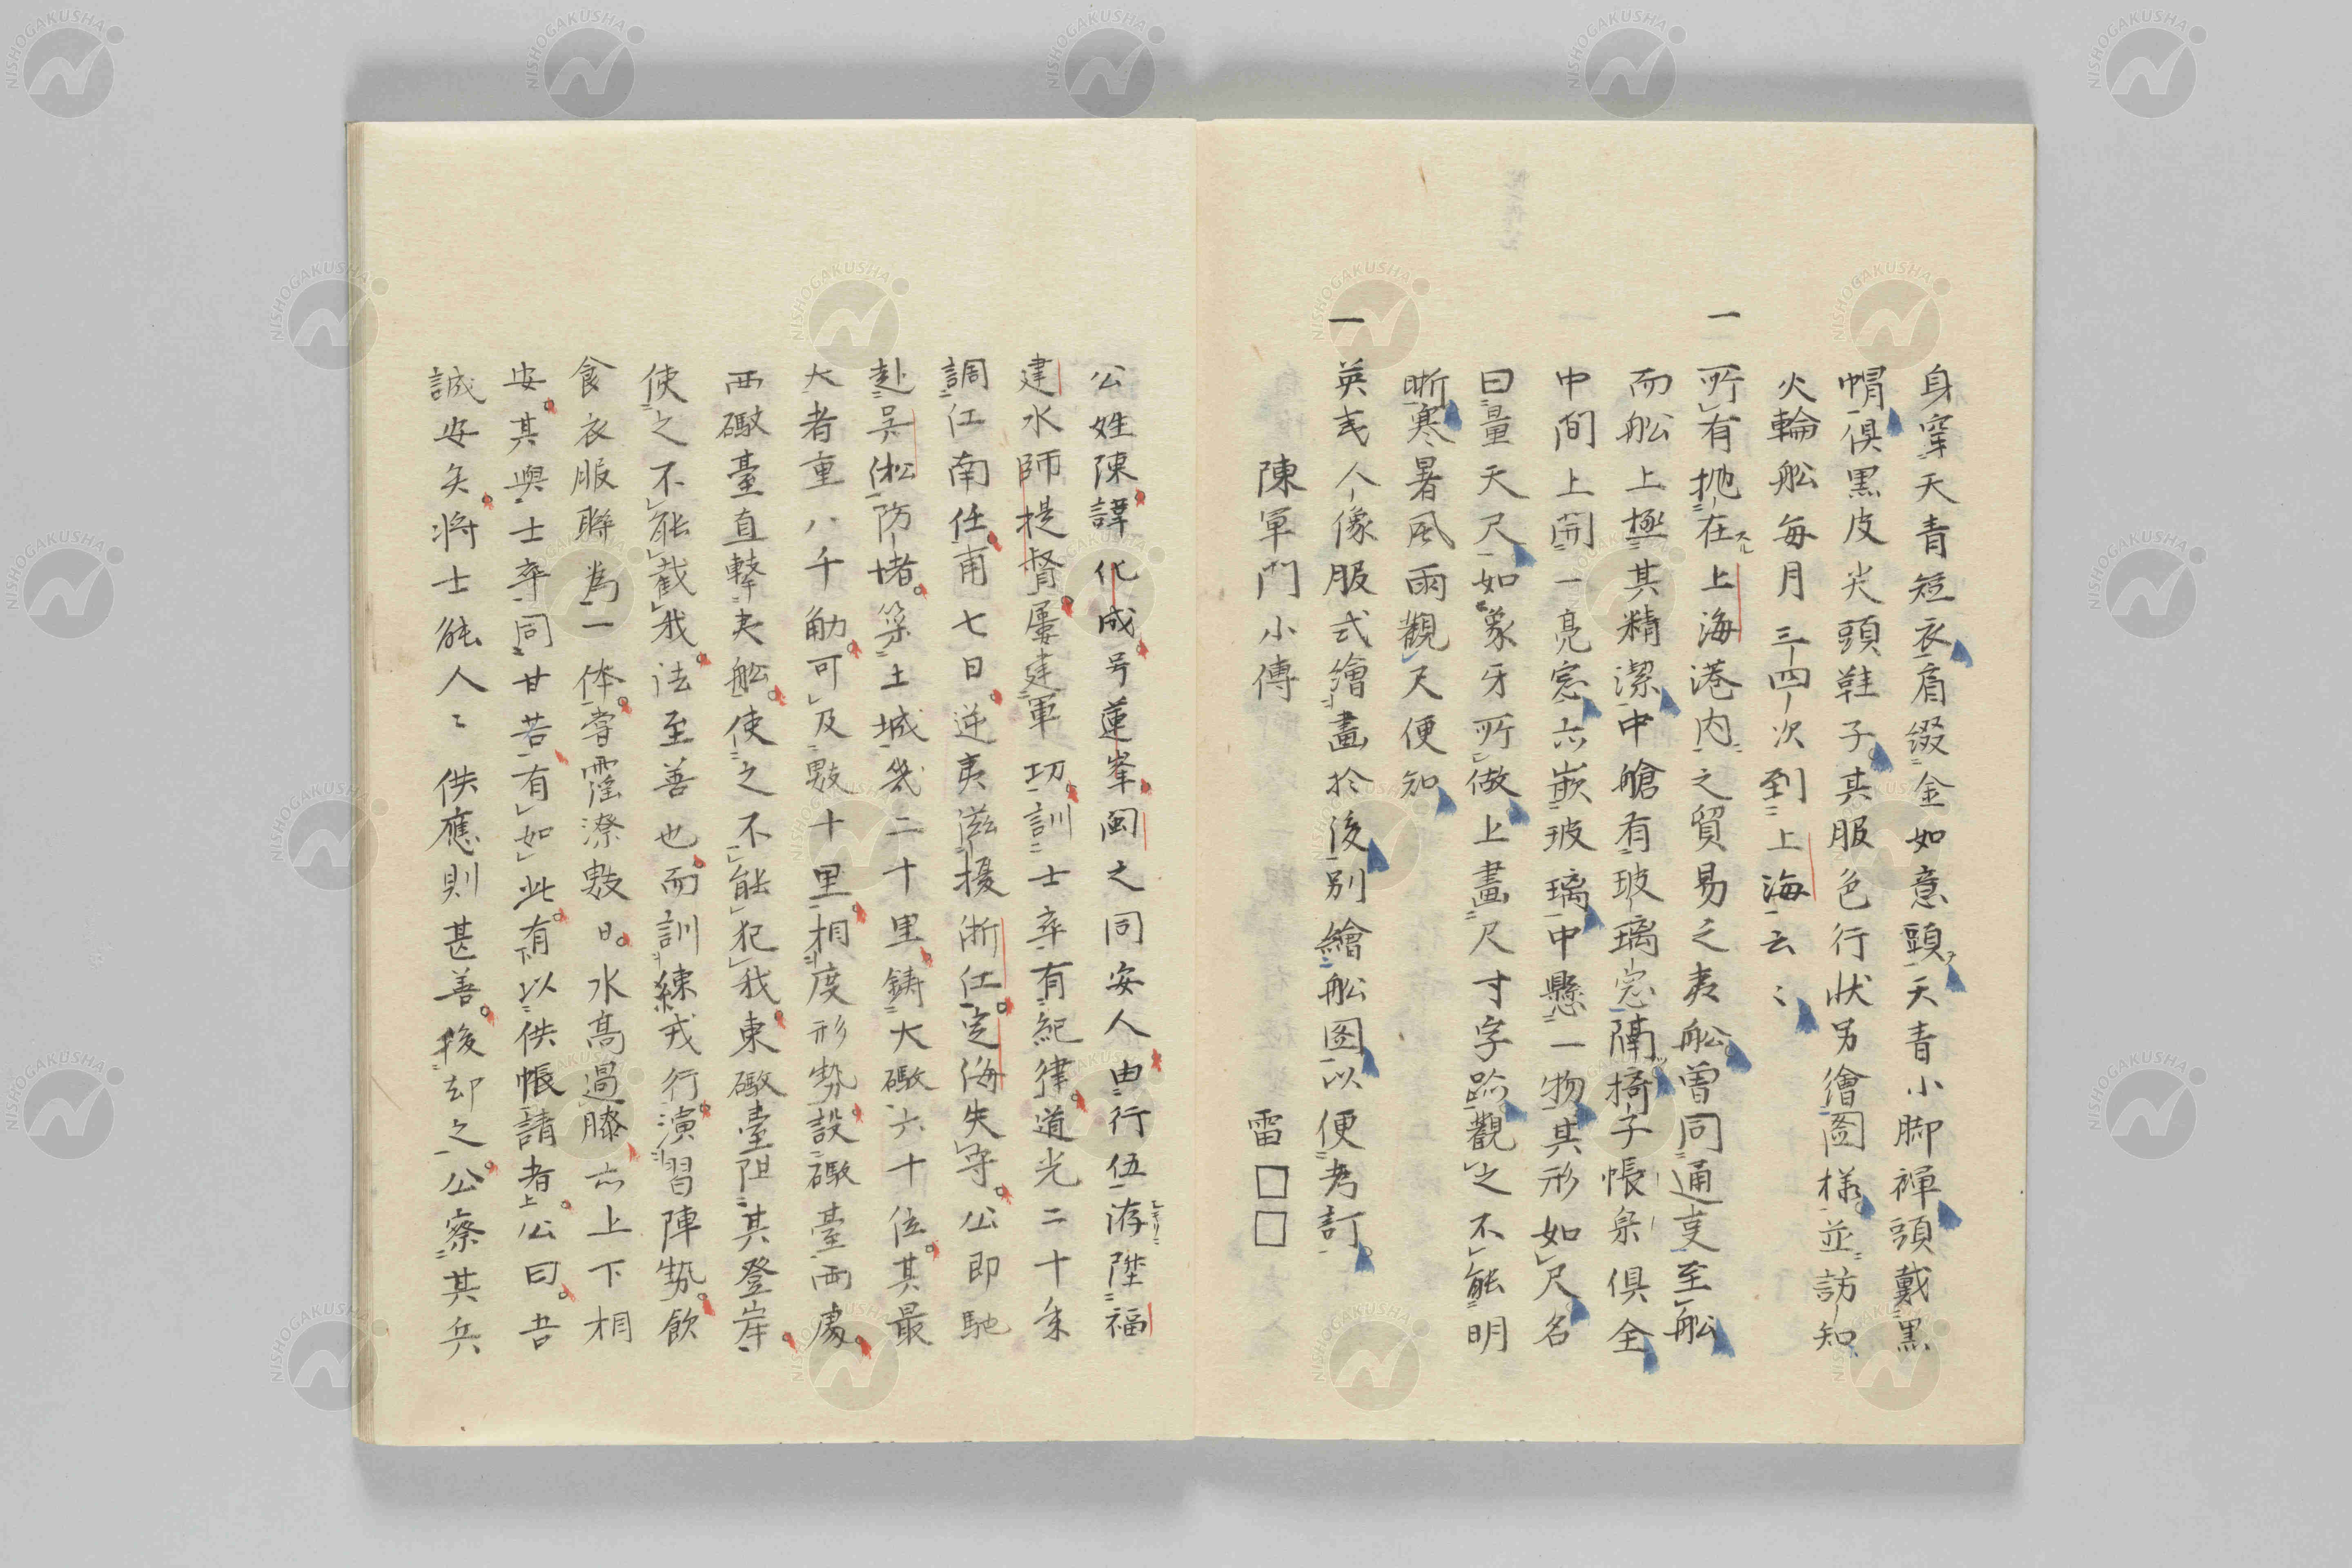 身穿天青短衣肩綴金如意頭天青小脚褌頭戴黒
帽倶黒皮尖頭鞋子其服色行状另繪圖様並訪知
火輪舩毎月三四次到上海云〻
一 所有抛在上海港内之貿易之夷舩曽同通叓至舩
而舩上極其精潔中艙有玻璃窓隔椅子帳桌倶全
中間上開一亮窓亦嵌玻璃中懸一物其形如尺名
曰量天尺如象牙所做上畫尺寸字跡觀之不能明
晰寒暑風雨觀天便知
一 英夷人像服式繪畫於後別繪舩图以便考訂
陳軍門小傳 雷□□
公姓陳諱化成号蓮峯閩之同安人由行伍洊陞福
建水師提督屢建軍功訓士卒有紀律道光二十年
調江南任甫七日逆夷滋擾浙江定海失守公即馳
赴吴淞防堵築土城幾二十里鋳大礮六十位其最
大者重八千觔可及數十里相度形勢設礮臺両處
西礮臺直擊夷舩使之不能犯我東礮臺阻其登岸
使之不能截我法至善也而訓練戎行演習陣勢飲
食衣服聯為一体嘗霪潦數日水高過膝亦上下相
安其與士卒同甘苦有如此有以供帳請者公曰吾
誠安矣将士能人〻供應則甚善後却之公察其兵